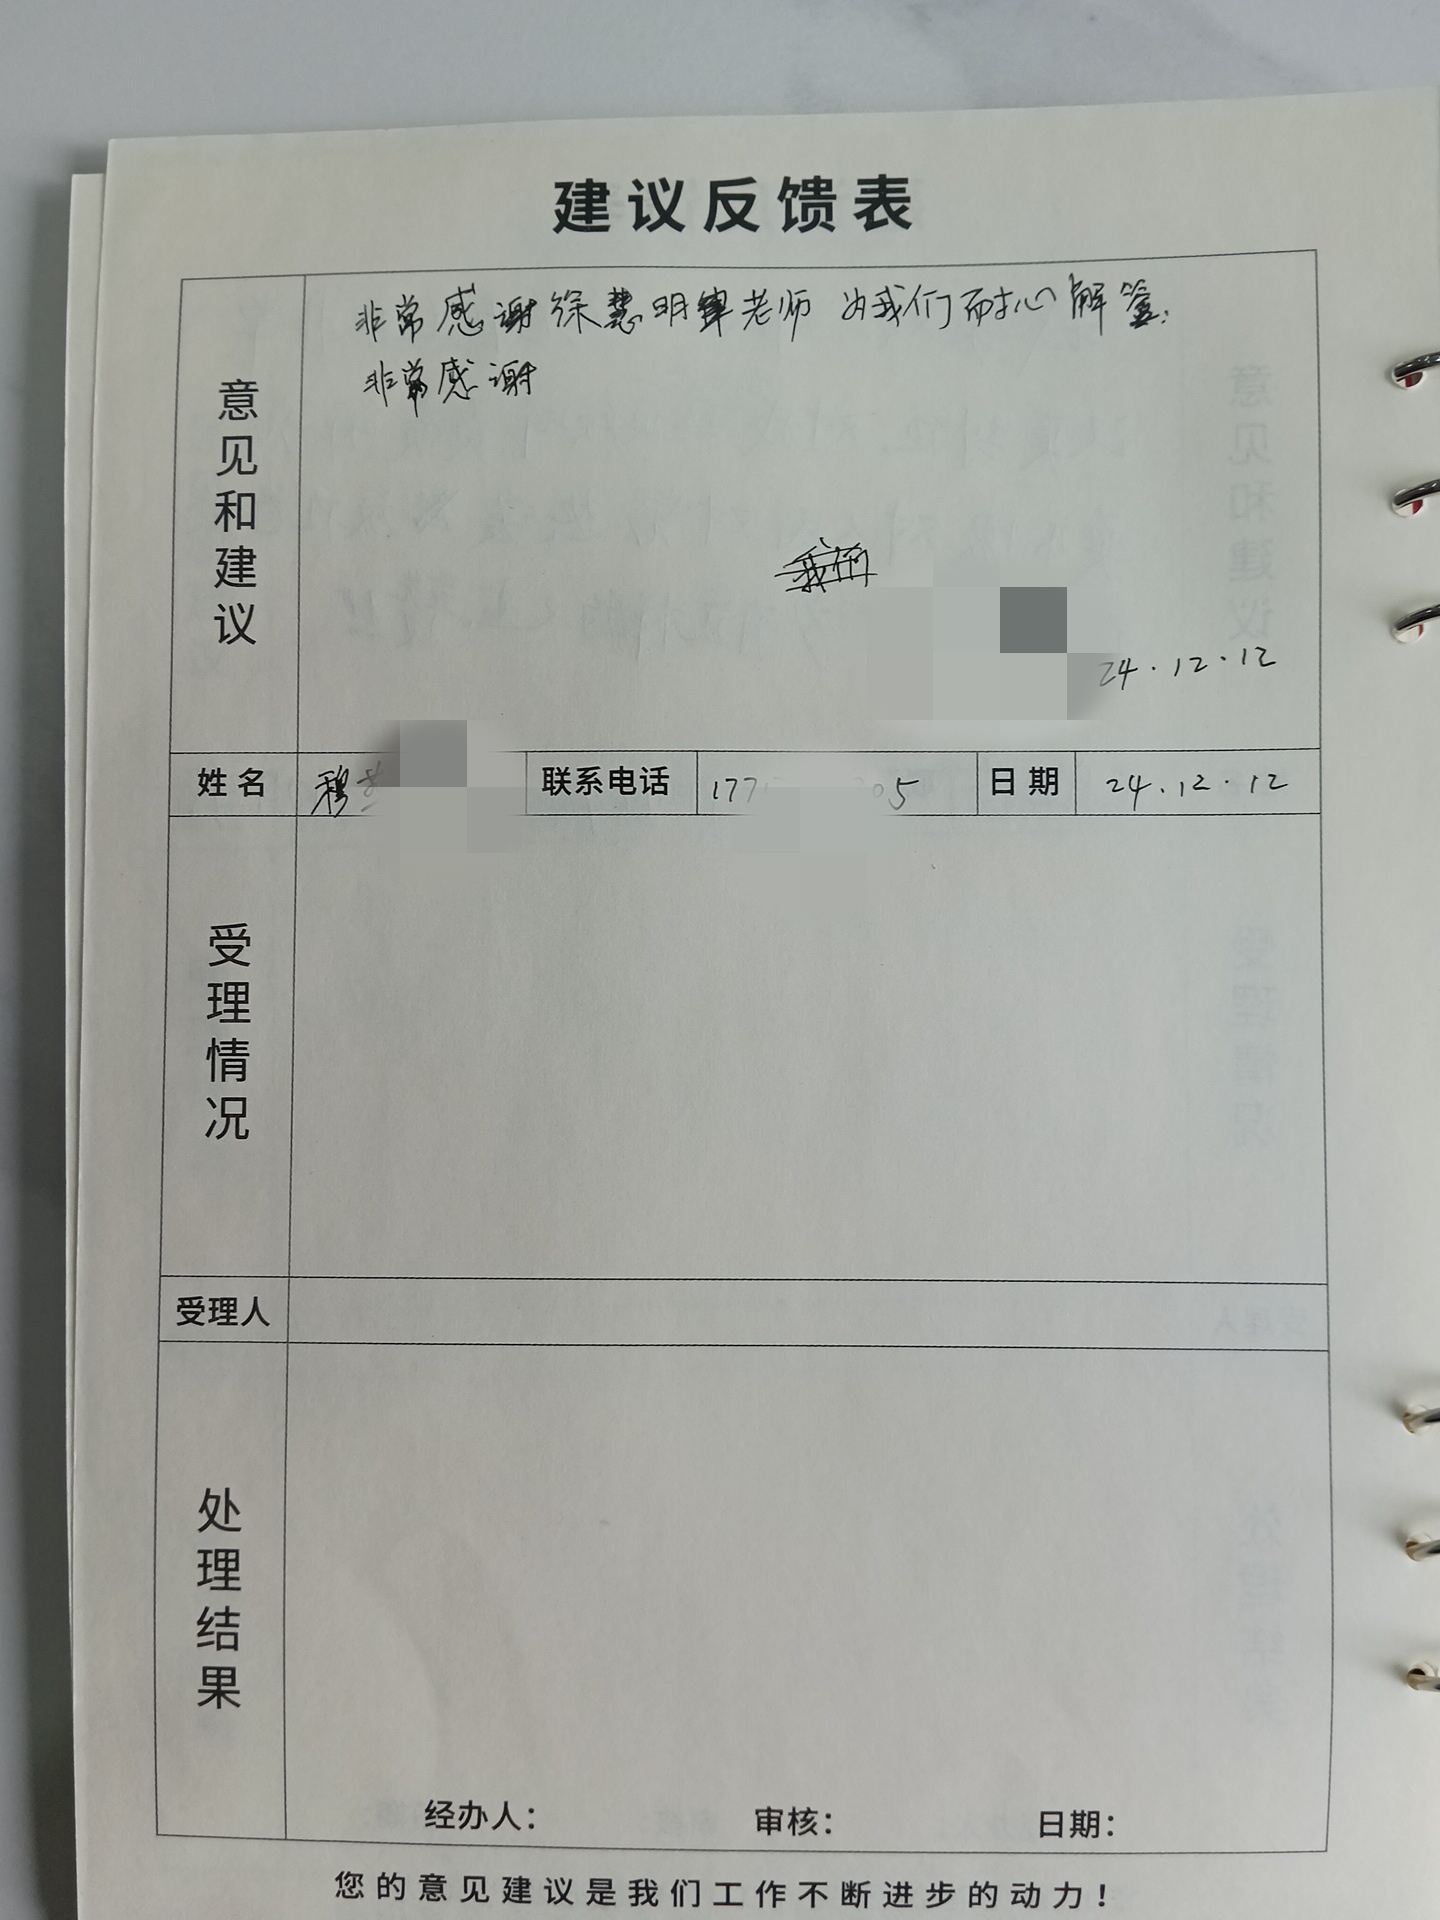 建议反馈表
意见和建议
非常感谢徐慧明律老师 为我们耐心解答.
非常感谢
24.12.12
姓名 穆 联系电话 177 05 日期 24.12.12
受理情况
受理人
处理结果
经办人： 审核： 日期：
您的意见建议是我们工作不断进步的动力！